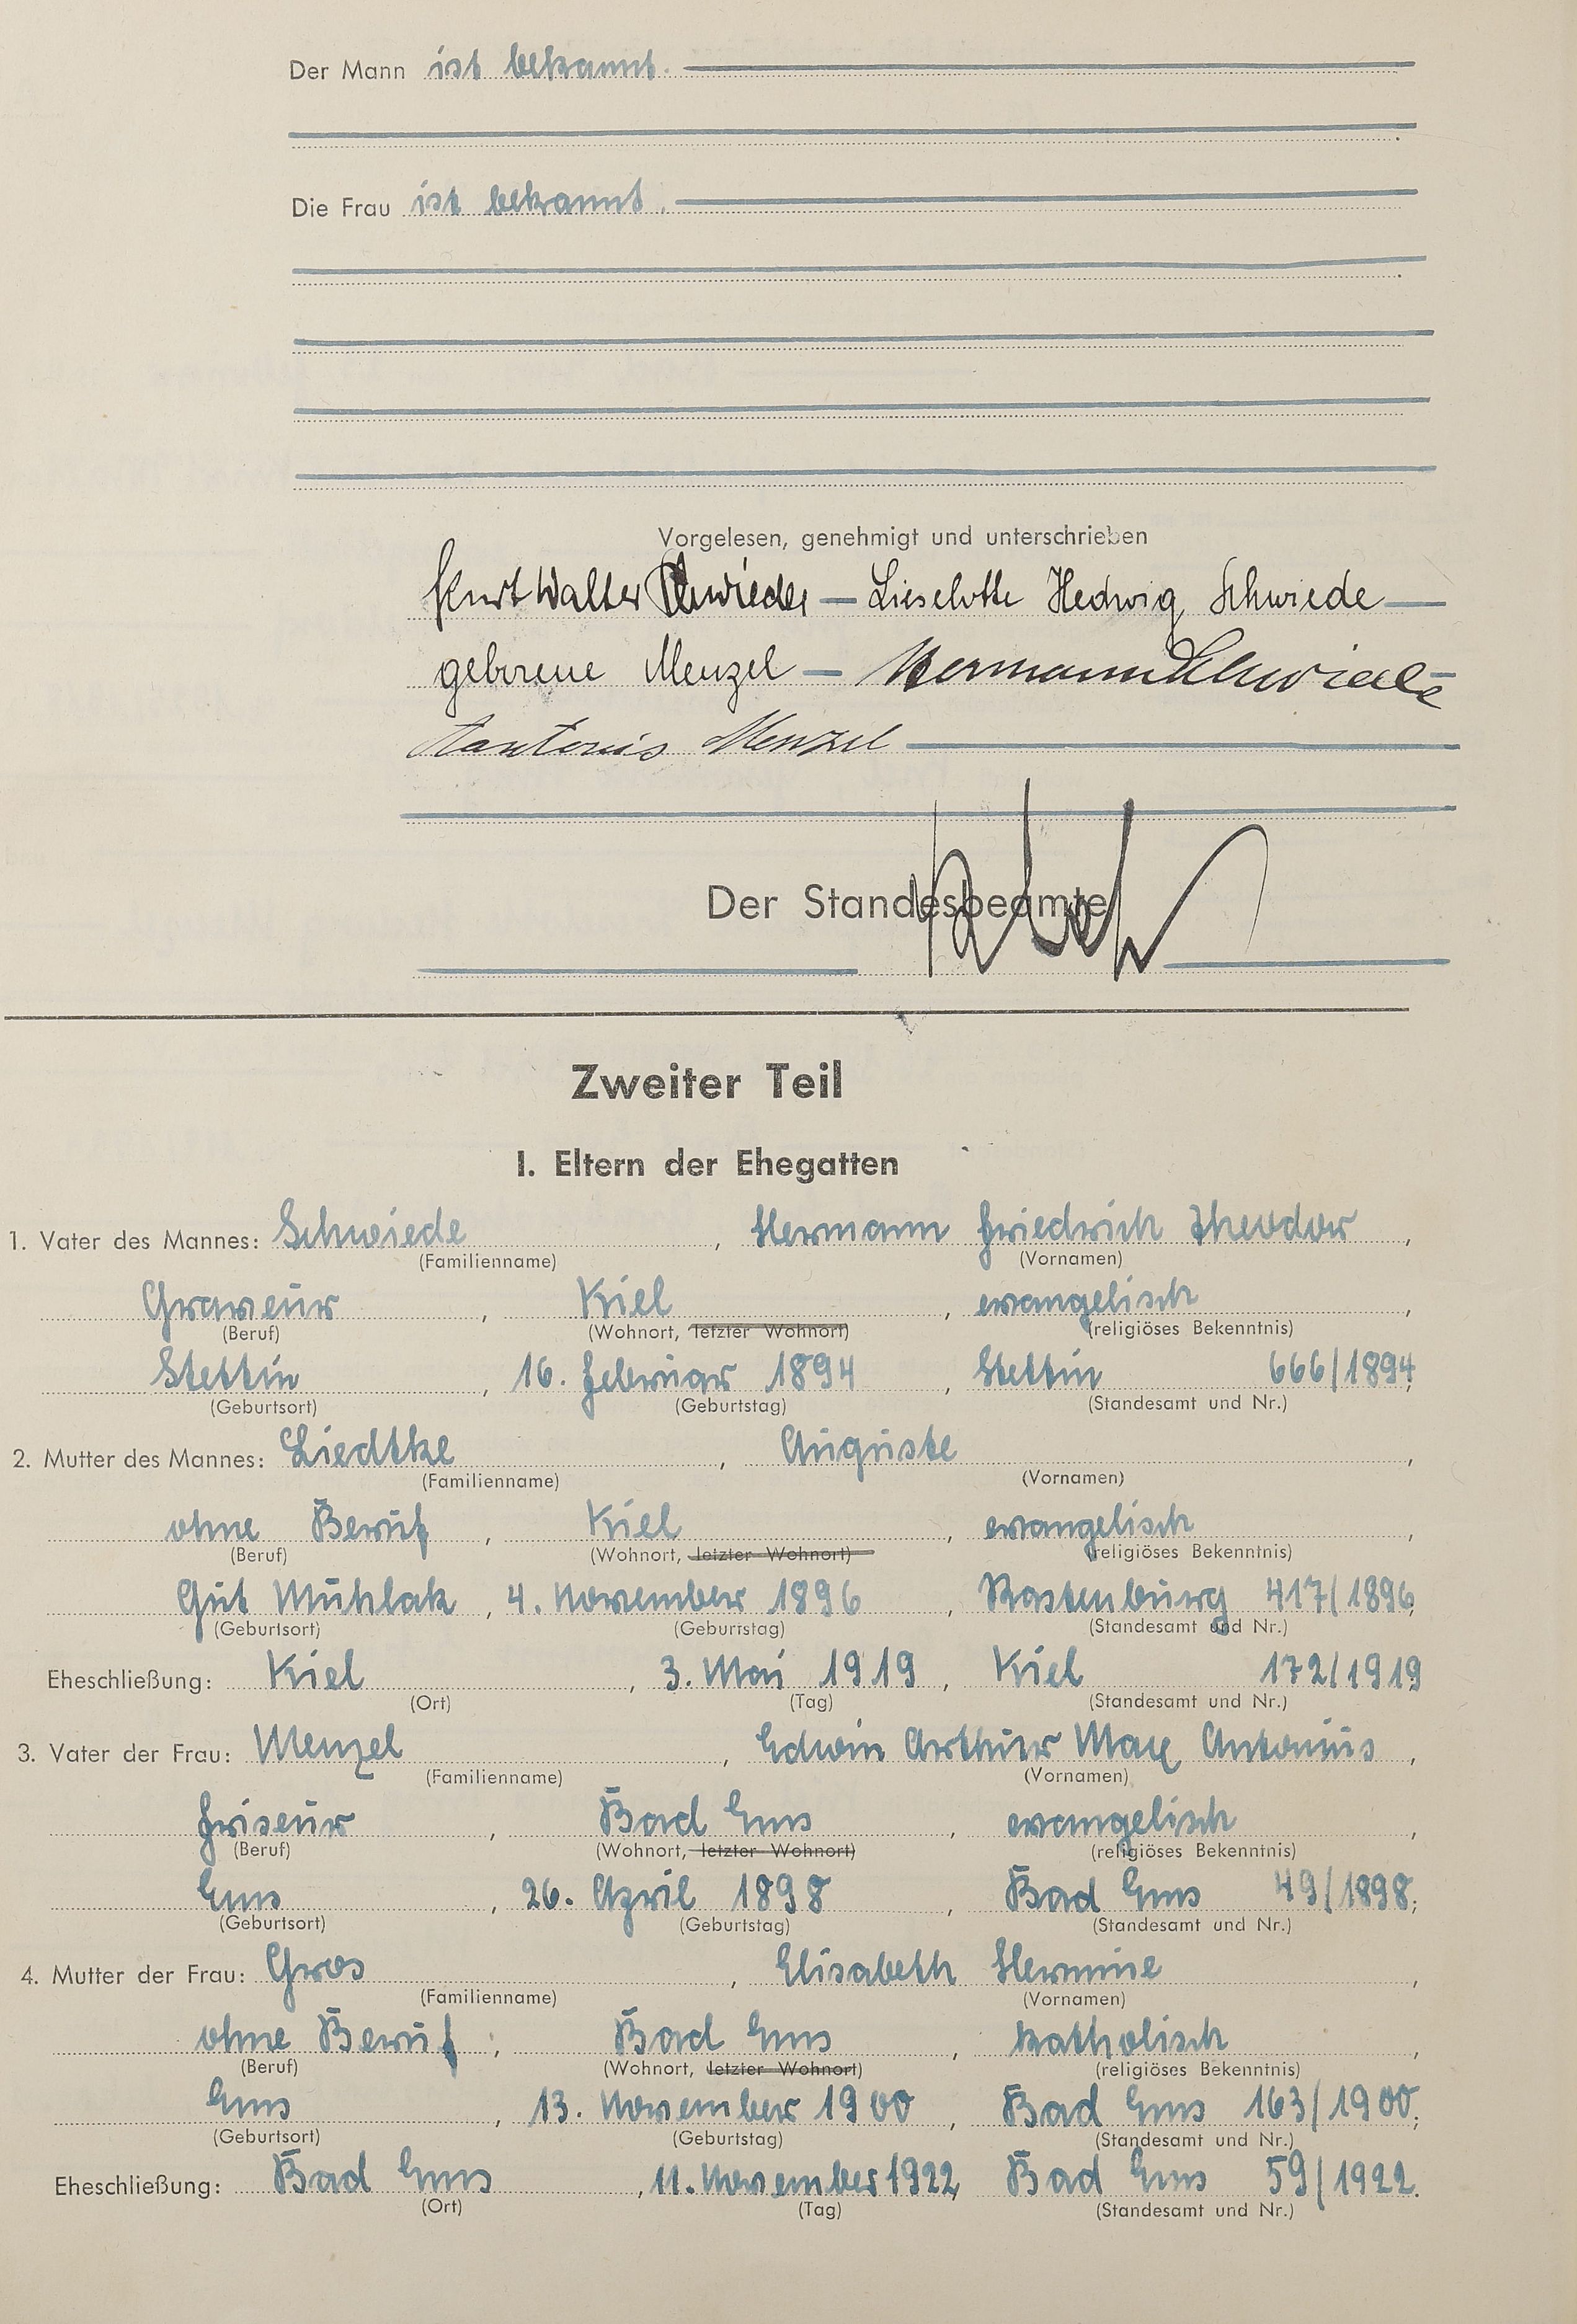 Der Mann ist bekannt.
Die Frau ist bekannt.
Vorgelesen, genehmigt und unterschrieben
Kurt Walter Schwiede – Lieselotte Hedwig Schwiede
geborene Menzel – Hermann Schwiede
Antonius Menzel
Der Standesbeamte
Zweiter Teil
I. Eltern der Ehegatten
1. Vater des Mannes: Schwiede, Hermann Friedrich Theodor,
(Familienname) (Vornamen)
Graveur, Kiel, evangelisch,
(Beruf) (Wohnort, letzter Wohnort) (religiöses Bekenntnis)
Stettin, 16. Februar 1894, Stettin 666/1894;
(Geburtsort) (Geburtstag) (Standesamt und Nr.)
2. Mutter des Mannes: Liedtke, Auguste,
(Familienname) (Vornamen)
ohne Beruf, Kiel, evangelisch,
(Beruf) (Wohnort, letzter Wohnort) (religiöses Bekenntnis)
Gut Mühlak, 4. November 1896, Rastenburg 417/1896;
(Geburtsort) (Geburtstag) (Standesamt und Nr.)
Eheschließung: Kiel, 3. Mai 1919, Kiel 172/1919
(Ort) (Tag) (Standesamt und Nr.)
3. Vater der Frau: Menzel, Edwin Arthur Max Antonius,
(Familienname) (Vornamen)
Friseur, Bad Ems, evangelisch,
(Beruf) (Wohnort, letzter Wohnort) (religiöses Bekenntnis)
Ems, 26. April 1898, Bad Ems 49/1898;
(Geburtsort) (Geburtstag) (Standesamt und Nr.)
4. Mutter der Frau: Gros, Elisabeth Hermine,
(Familienname) (Vornamen)
ohne Beruf, Bad Ems, katholisch,
(Beruf) (Wohnort, letzter Wohnort) (religiöses Bekenntnis)
Ems, 13. November 1900, Bad Ems 163/1900;
(Geburtsort) (Geburtstag) (Standesamt und Nr.)
Eheschließung: Bad Ems, 11. November 1922, Bad Ems 59/1922.
(Ort) (Tag) (Standesamt und Nr.)